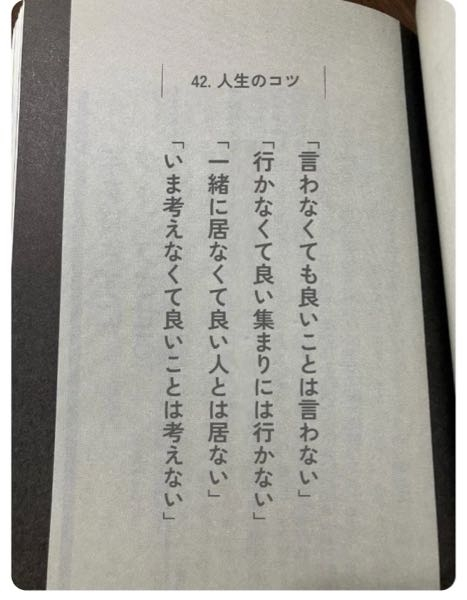 42. 人生のコツ
「言わなくても良いことは言わない」
「行かなくて良い集まりには行かない」
「一緒に居なくて良い人とは居ない」
「いま考えなくて良いことは考えない」